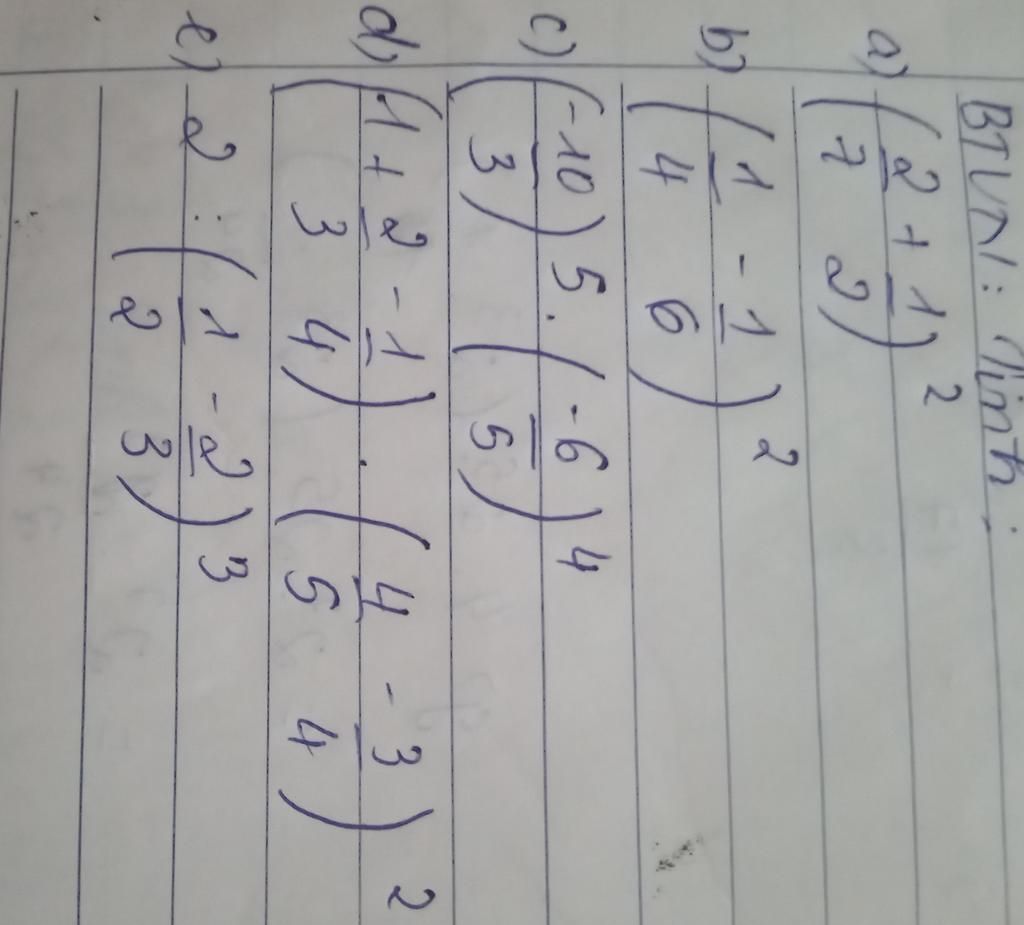 BTVN: Tính:
a) (2/7 + 1/2)²
b) (1/4 - 1/6)²
c) (-10/3)5 . (-6/5)4
d) (1 + 2/3 - 1/4) . (4/5 - 3/4)²
e) 2 : (1/2 - 2/3)³